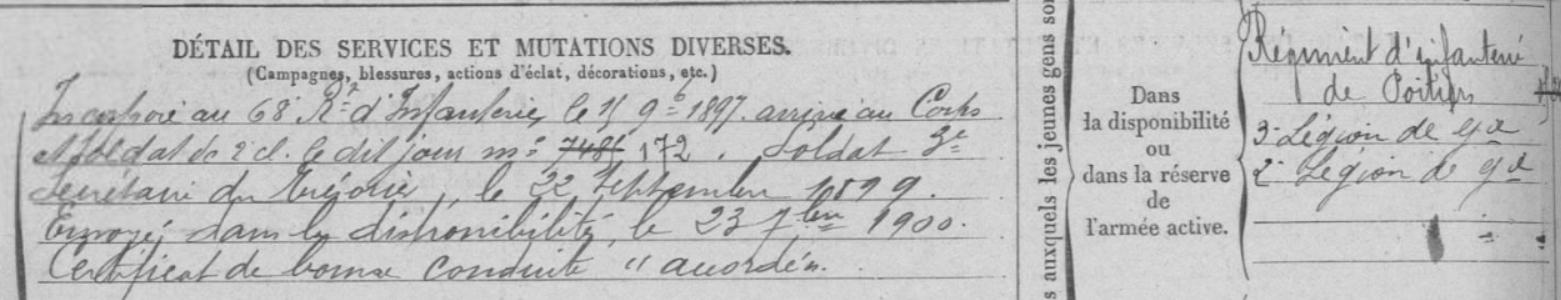 DÉTAIL DES SERVICES ET MUTATIONS DIVERSES.
(Campagnes, blessures, actions d'éclat, décorations, etc.)
Incorporé au 68e Rt d'Infanterie, le 15 9bre 1897. arrivé au Corps
et soldat de 2e cl. le dit jour no 7485 172. Soldat
Secrétaire du Trésorier, le 22 Septembre 1899.
Envoyé dans la disponibilité, le 23 7bre 1900.
Certificat de bonne conduite "accordé".
s auxquels les jeunes gens so
Dans
la disponibilité
ou
dans la réserve
de
l'armée active.
Régiment d'infanterie
de Poitiers
3e Légion de gie
2e Légion de gie